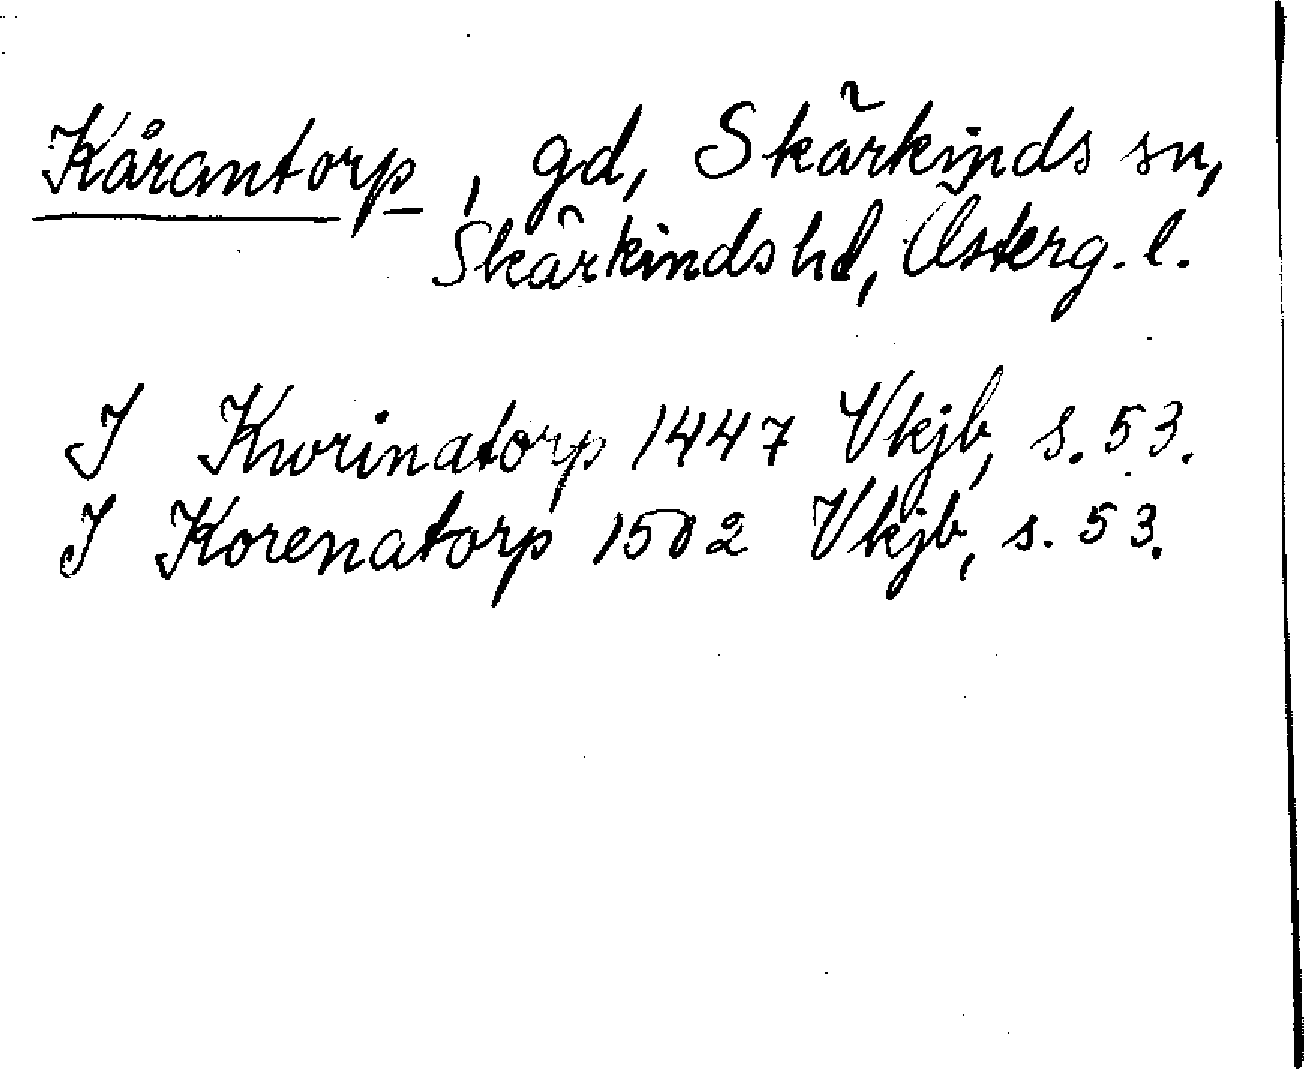 Kårantorp, gd, Skärkinds sn,
Skärkinds hd, Österg. l.
J Kworinatorp 1447 Vkjb, s. 53.
J Korenatorp 1502 Vkjb, s. 53.